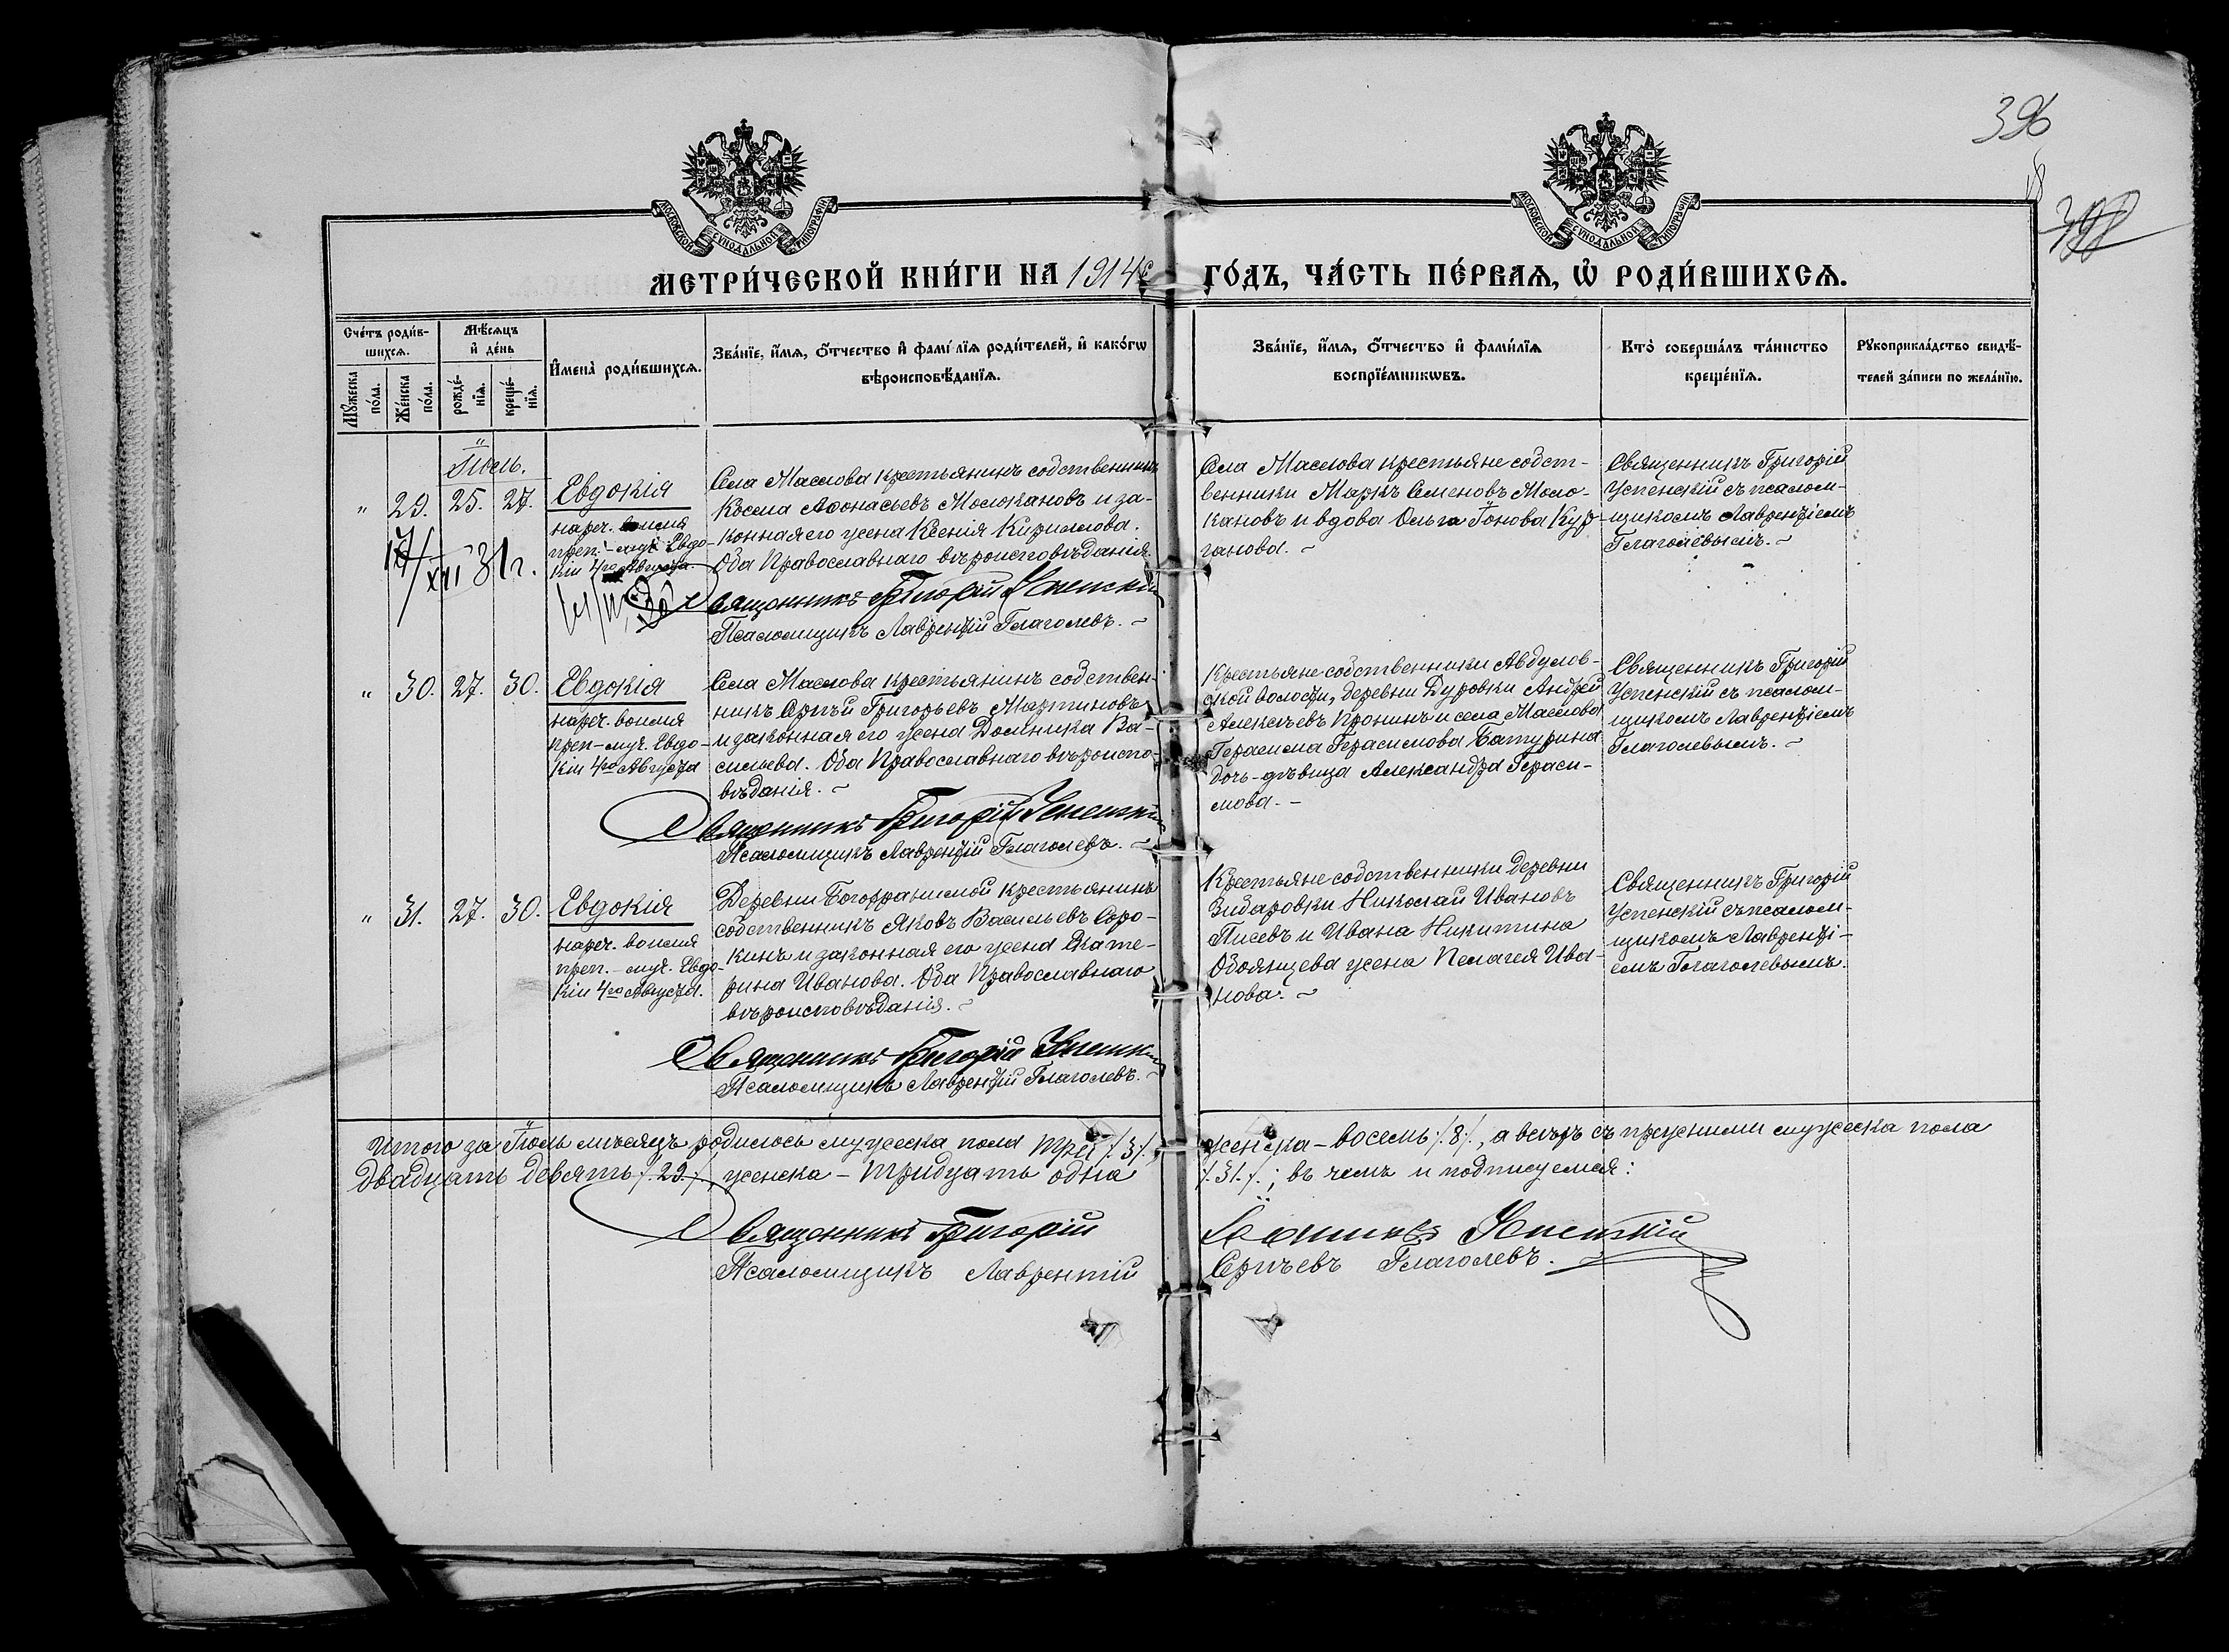 396
398
МОСКОВСКОЙ СУНОДАЛЬНОЙ ТИПОГРАФІИ
МОСКОВСКОЙ СУНОДАЛЬНОЙ ТИПОГРАФІИ
МЕТРИ́ЧЕСКОЙ КНИ́ГИ НА 1914
ГО́ДЪ, ЧА́СТЬ ПЕ́РВАѦ, Ѡ҆ РОДИ́ВШИХСѦ.
Сче́тъ роди́в-
шихсѧ.
Мѣ́сѧцъ
и҆ де́нь
Мꙋ́жеска
по́ла.
Же́нска
по́ла.
рожде́-
нїѧ.
креще́-
нїѧ.
И҆мена̀ роди́вшихсѧ.
Зва́нїе, и҆́мѧ, ѻ҆́тчество и҆ фамѝлїѧ роди́телей, и҆ како́гѡ
вѣроисповѣ́данїѧ.
Зва́нїе, и҆́мѧ, ѻ҆́тчество и҆ фами́лїѧ
воспрїе́мникѡвъ.
Кто̀ соверша́лъ та́инство
креще́нїѧ.
Рꙋкоприкла́дство свидѣ́-
телей за́писи по жела́нїю.
Іюль.
" 29. 25. 27.
Евдокія
нареч. во имя
преп.-муч. Евдо-
кіи 4го Августа
17/XII 31г.
Села Маслова крестьянинъ собственникъ
Косма Аѳонасьевъ Молокановъ и за-
конная его жена Ксенія Кириллова.
Оба Православнаго вѣроисповѣданія.
Священникъ Григорій Успенскій
Псаломщикъ Лаврентій Глаголевъ.
Села Маслова крестьяне собст-
венники Маркъ Семеновъ Моло-
кановъ и вдова Ольга Іонова Кур-
ганова.
Священникъ Григорій
Успенскій съ псалом-
щикомъ Лаврентіемъ
Глаголевымъ.
" 30. 27. 30.
Евдокія
нареч. во имя
преп-муч. Евдо-
кіи 4го Августа
Села Маслова крестьянинъ собствен-
никъ Сергѣй Григорьевъ Мартиновъ
и законная его жена Домника Ва-
сильева. Оба Православнаго вѣроиспо-
вѣданія.
Священникъ Григорій Успенскій
Псаломщикъ Лаврентій Глаголевъ.
Крестьяне собственники Авдулов-
ской волости, деревни Дуровки Андрей
Алексѣевъ Пронинъ и села Маслова
Герасима Герасимова Батурина
дочь-дѣвица Александра Гераси-
мова.
Священникъ Григорій
Успенскій съ псалом-
щикомъ Лаврентіемъ
Глаголевымъ.
" 31. 27. 30.
Евдокія
нареч. во имя
преп.-муч. Евдо-
кіи 4го Августа.
Деревни Богохранимой крестьянинъ
собственникъ Яковъ Васильевъ Соро-
кинъ и законная его жена Екате-
рина Иванова. Оба Православнаго
вѣроисповѣданія.
Священникъ Григорій Успенскій
Псаломщикъ Лаврентій Глаголевъ.
Крестьяне собственники деревни
Зибаровки Николай Ивановъ
Писевъ и Ивана Никитина
Обоянцева жена Пелагея Ива-
нова.
Священникъ Григорій
Успенскій съ псалом-
щикомъ Лавренті-
емъ Глаголевымъ.
Итого за Іюль мѣсяцъ родилось мужеска пола три /.3./, женска-восемь /.8./, а всѣхъ съ прежними мужеска пола
двадцать девять /.29./, женска-тридцать одна /.31./; въ чемъ и подписуемся:
Священникъ Григорій Іоанновъ Успенскій
Псаломщикъ Лаврентій Сергѣевъ Глаголевъ.